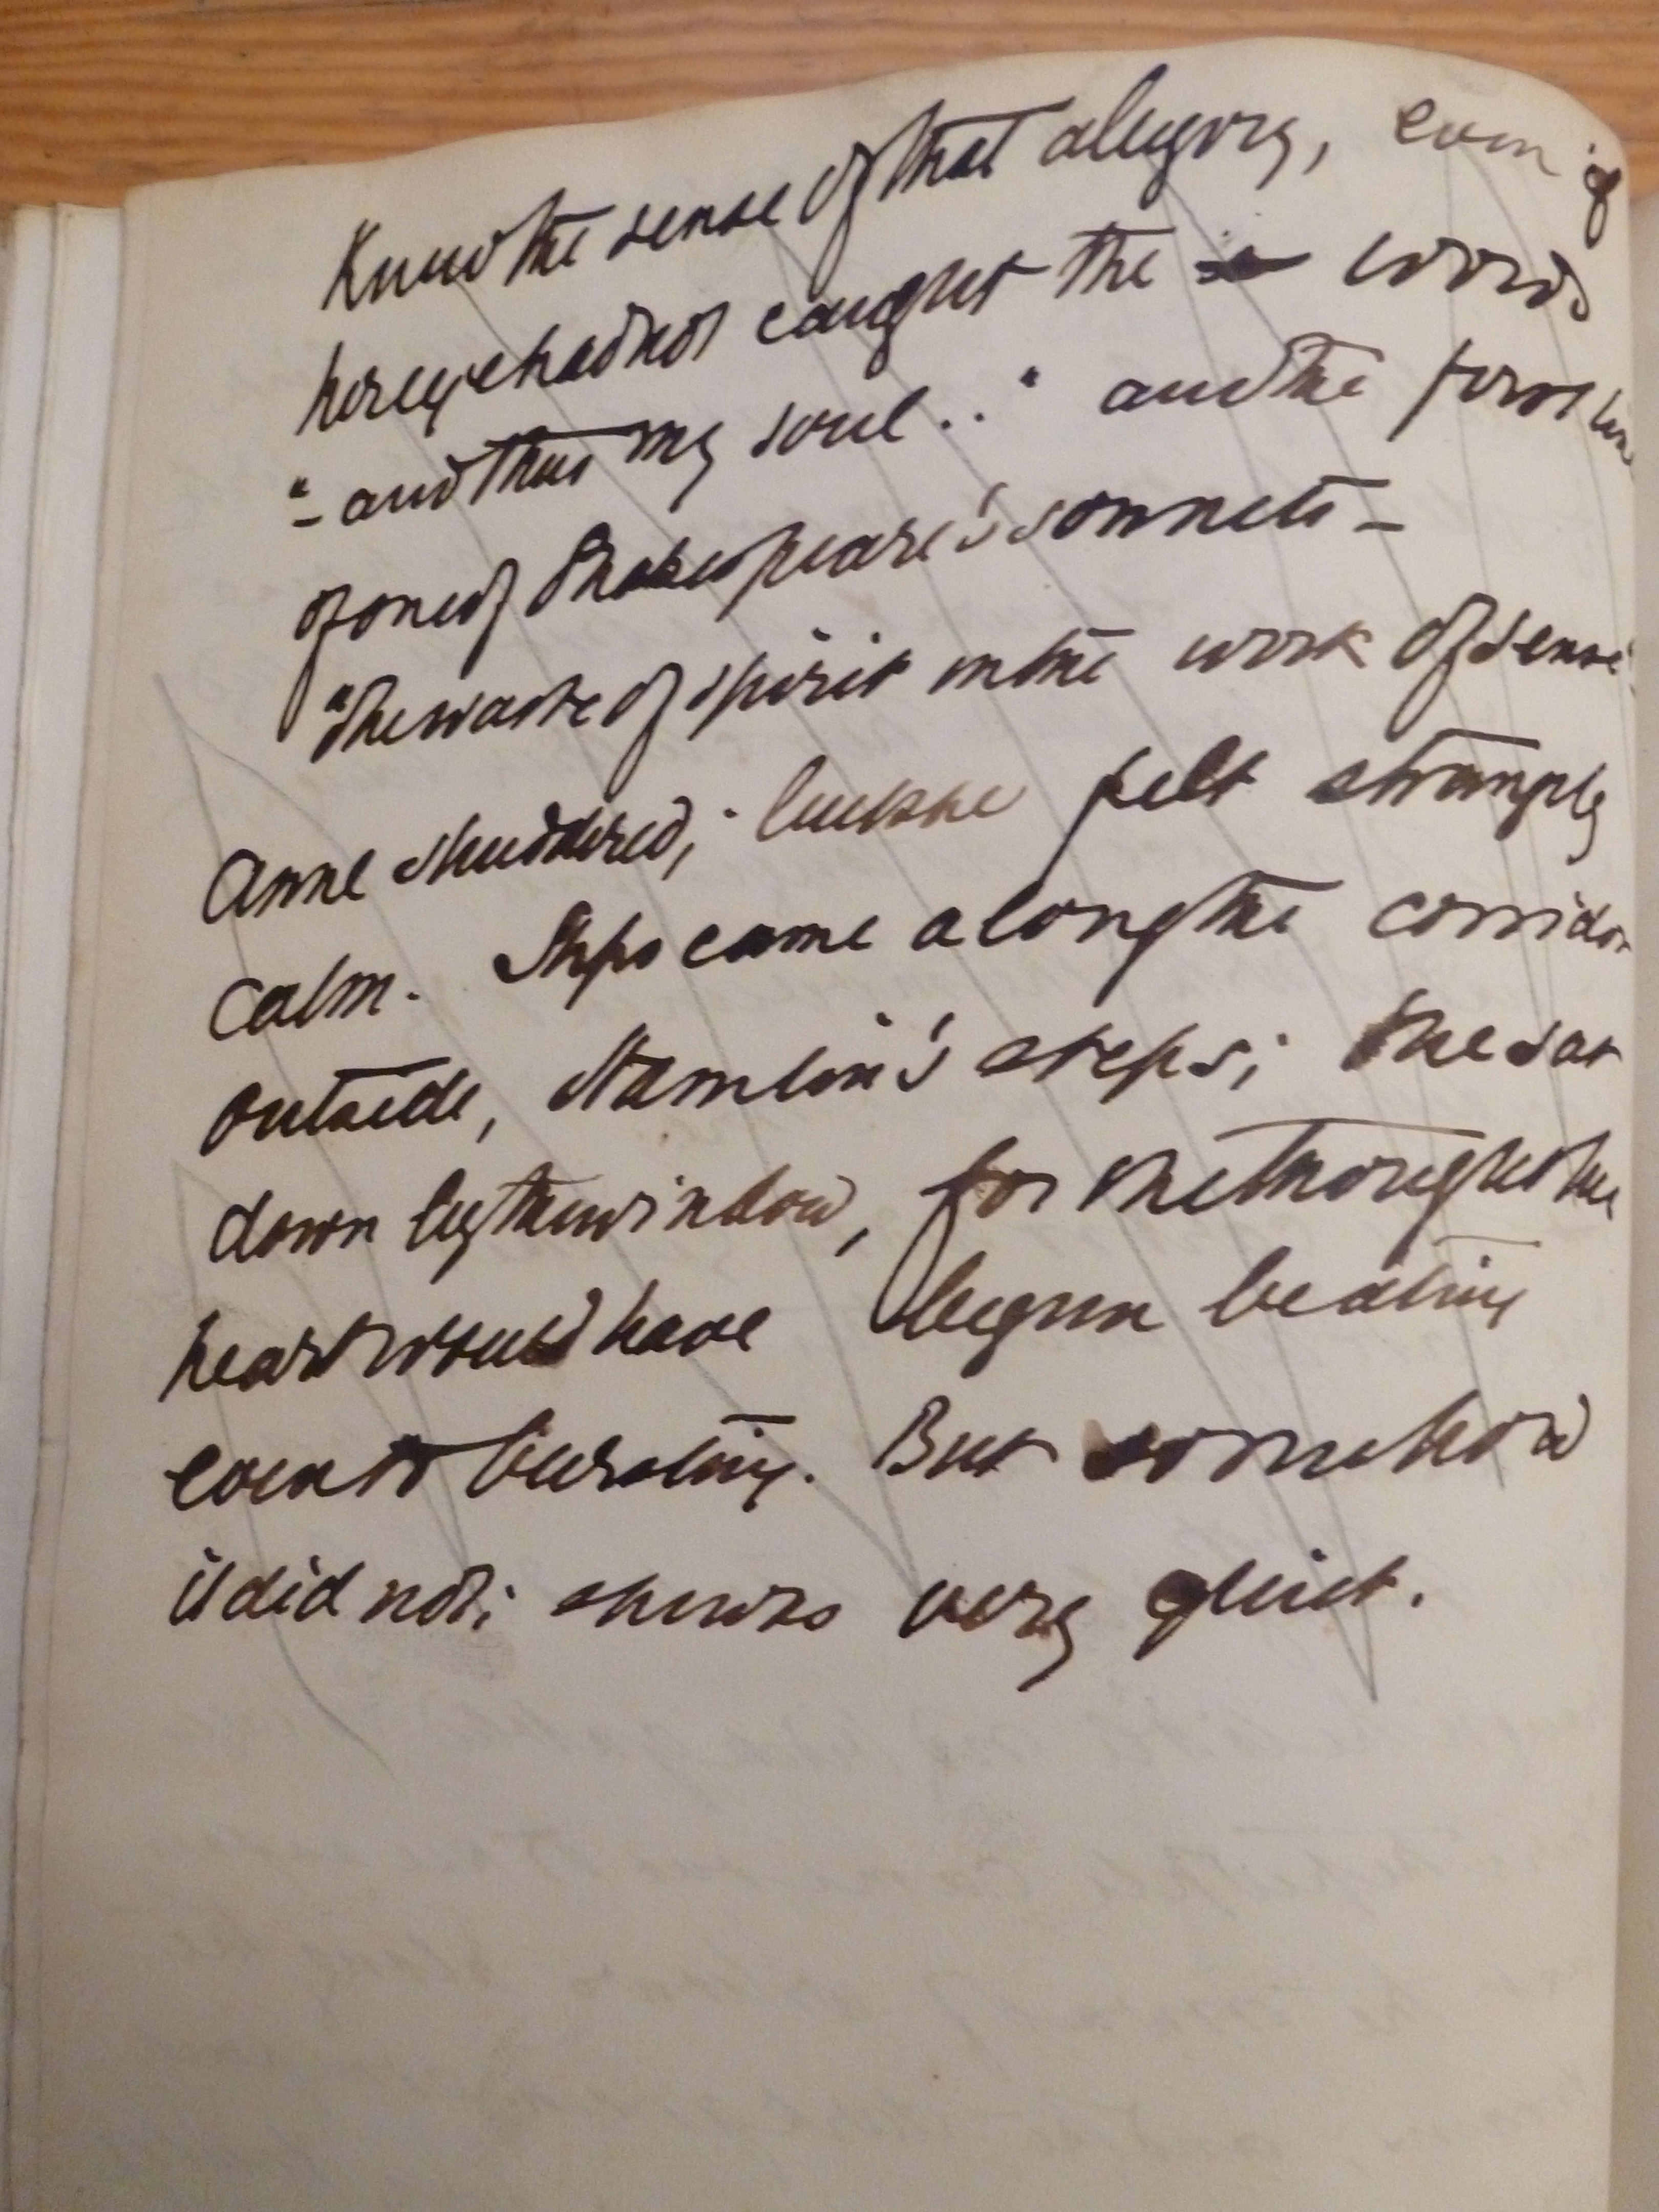 Knew the sense of that allegory, even if
her eye had not caught the words
"— and thus my soul .." and the first line
of one of Shakespeare's sonnets —
"The waste of spirit in the work of sense"
Anne shuddered; but she felt strangely
calm. Steps came along the corridor
outside, Hamlin's steps; she sat
down by the window, for she thought her
heart would have begun beating
even to bursting. But somehow
it did not; she was very quiet.